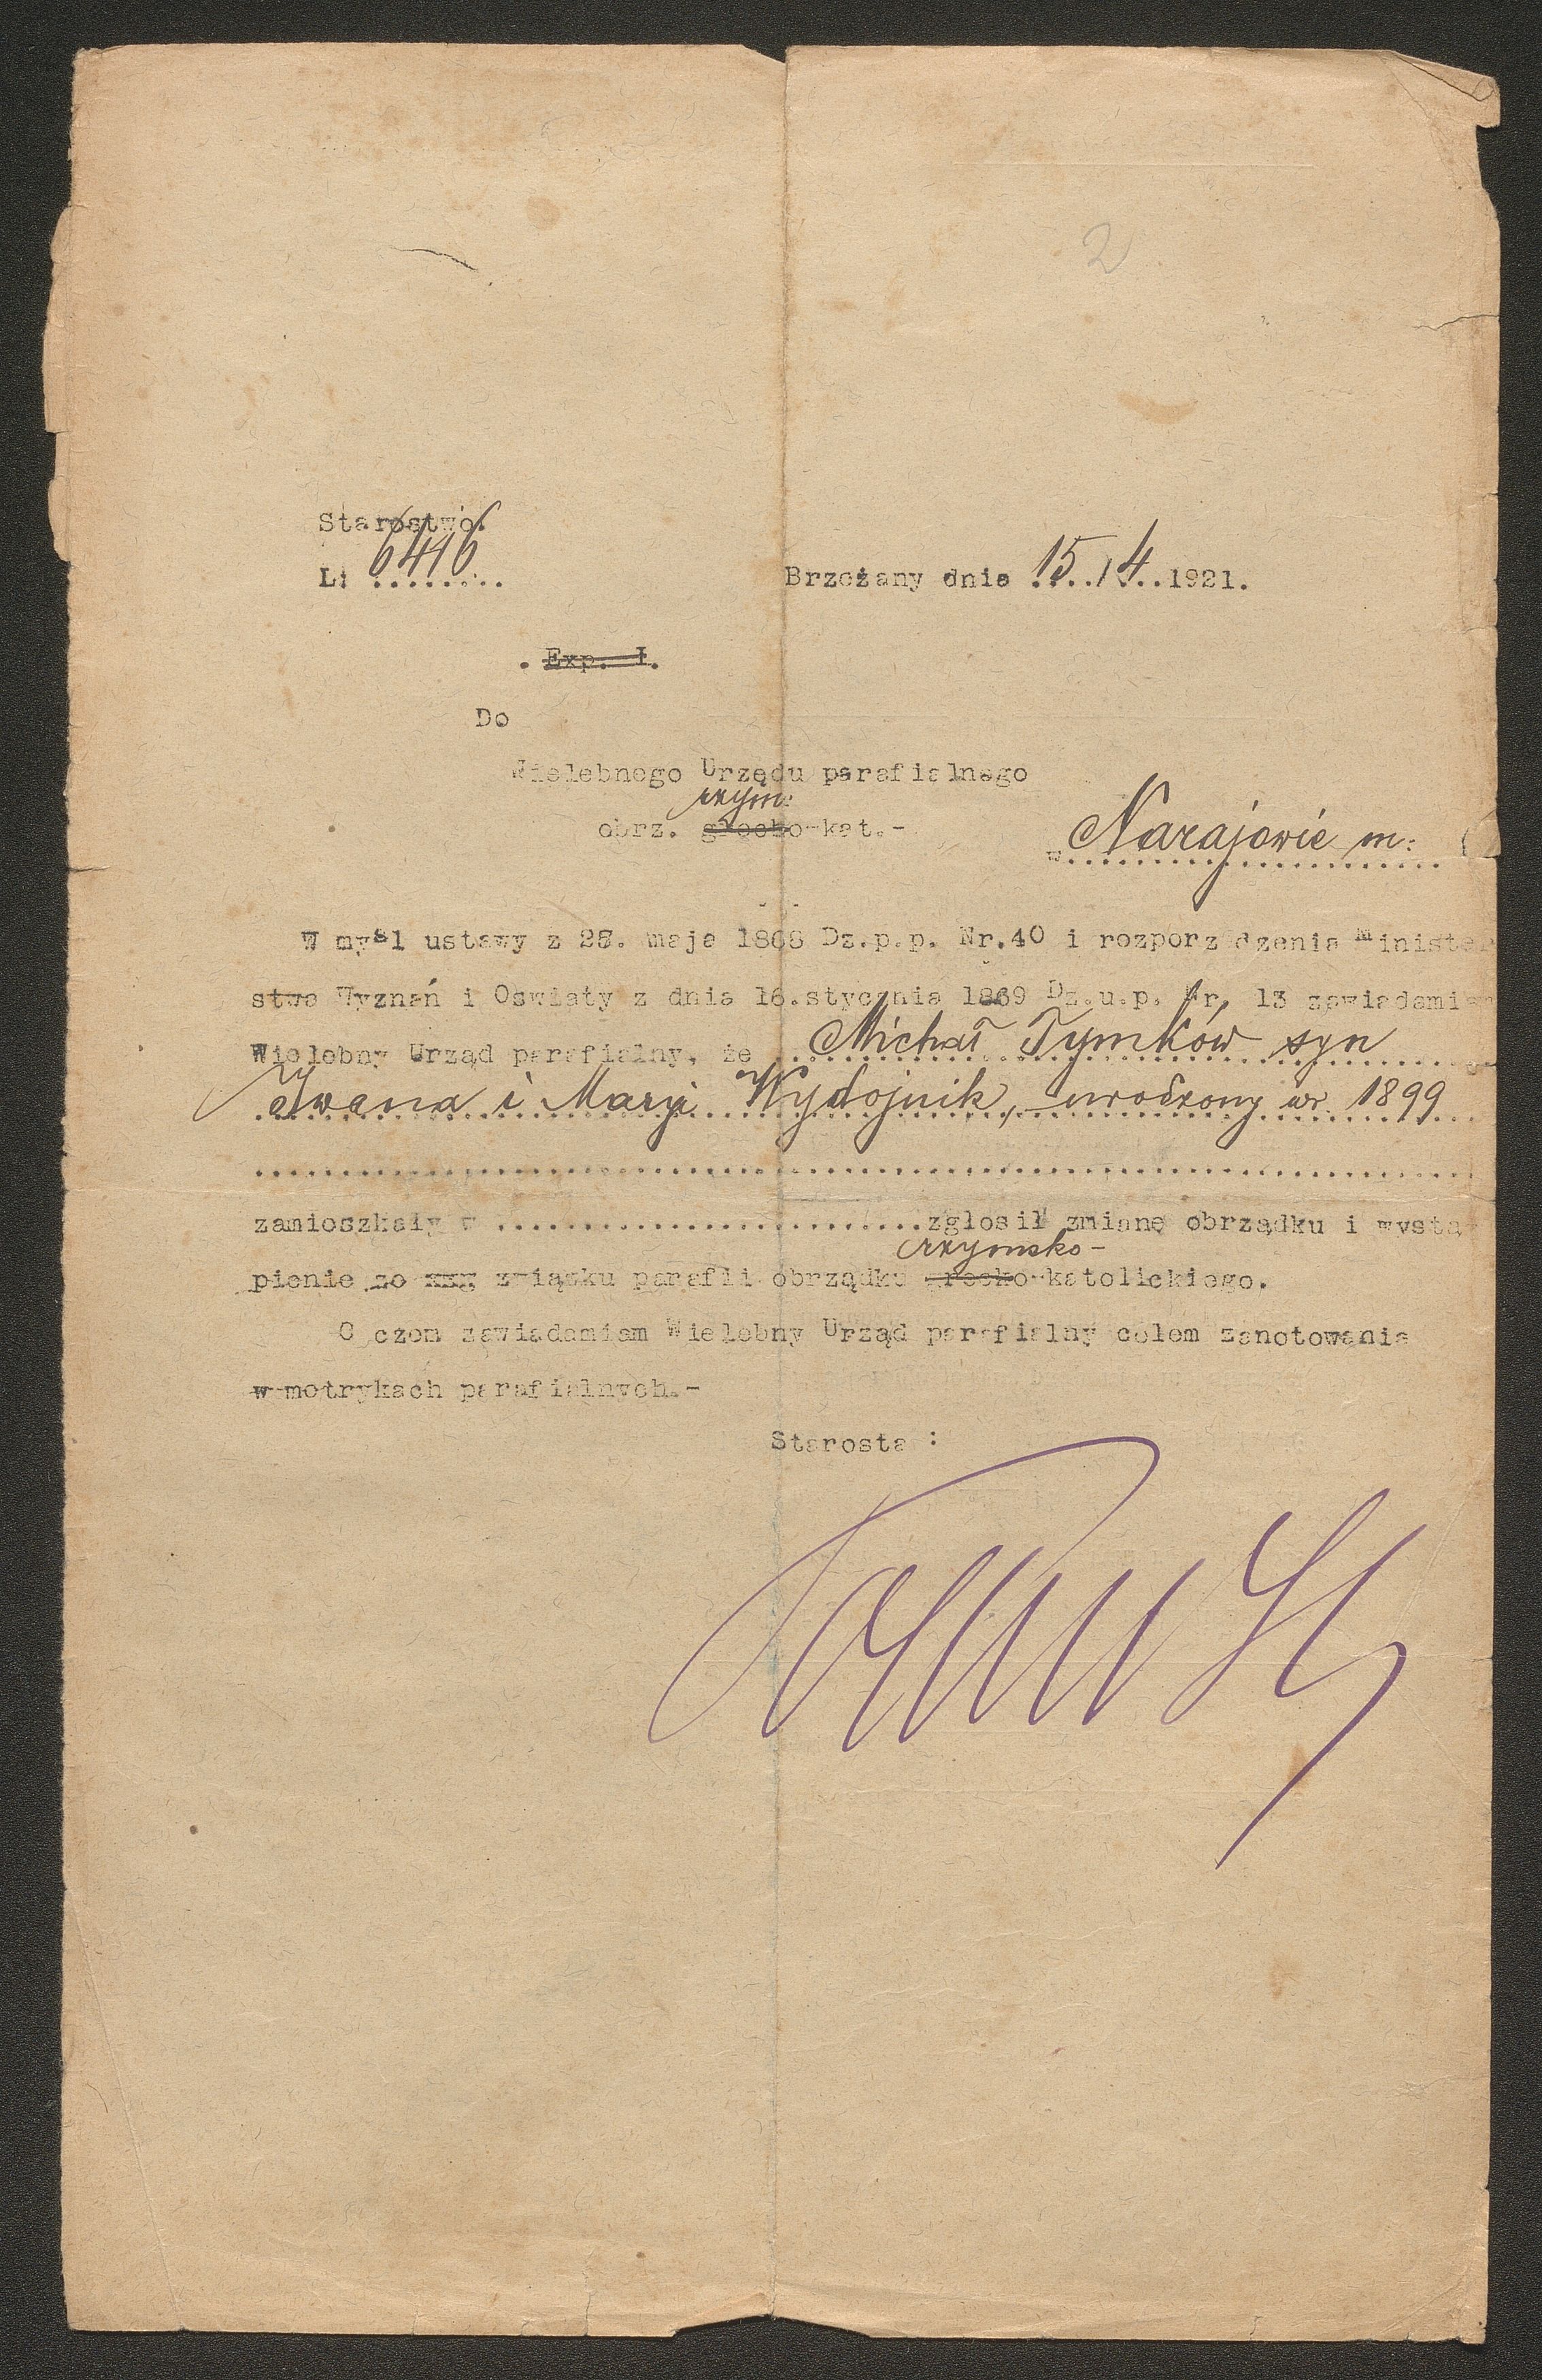 2
Starostwo.
L: 6416
Brzeżany dnia 15./4. 1921.
. Exp. I.
Do
Wielebnego Urzędu parafialnego
rzym:
obrz. grecko-kat.-
w Narajowie m:
W mysl ustawy z 28. maja 1868 Dz.p.p. Nr.40 i rozporządzenia Minister
stwa Wyznań i Oswiaty z dnia 16.stycznia 1869 Dz.u.p. Nr. 13 zawiadamiam
Wielebny Urząd parafialny, że Michał Tymków syn
Iwana i Maryi Wydojnik, urodzony w r. 1899
zamieszkały w ............................ zgłosił zmianę obrządku i wystą-
rzymsko-
pienie ze xxx związku parafii obrządku grecko-katolickiego.
O czem zawiadamiam Wielebny Urząd parafialny celem zanotowania
w metrykach parafialnych.-
Starosta :